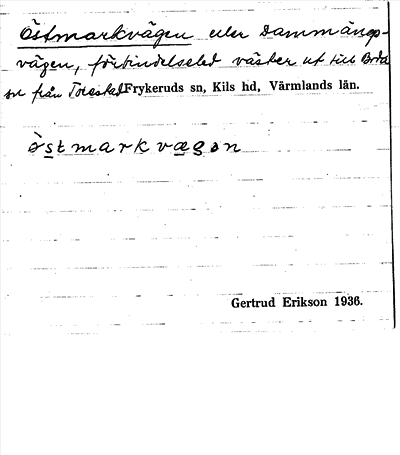 Östmarkvägen eller Dammängs-
vägen, förbindelseled väster ut till Broa
sn från Torestad Frykeruds sn, Kils hd, Värmlands län.
östmarkvægən
Gertrud Erikson 1936.